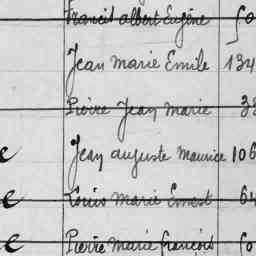 Francis Albert Eugène
Jean Marie Emile 134
Pierre Jean Marie 38
Jean Auguste Maurice 106
Louis Marie Ernest 64
Pierre Marie François